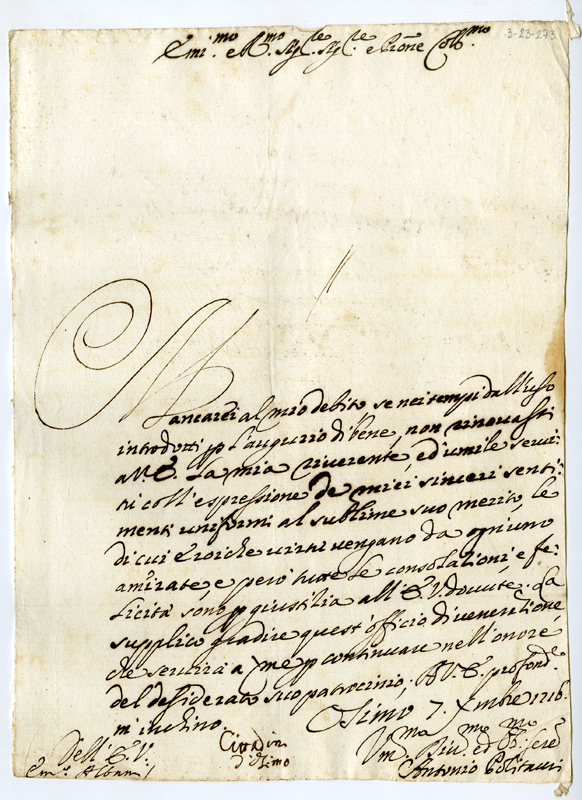 3-23-273
Emi.mo e R.mo Sig.re Sig.re e Prone Col.mo
Mancarei al mio debito se nei tempi dall'uso
introdotti p l'augurio di bene, non rinovassi
a V. E. la mia riverente, ed umile servi:
tù coll'espressione de miei sinceri senti:
menti uniformi al sublime suo merito, le
di cui Eroiche virtù vengano da ogn'uno
amirate, e però tutte le consolationi, e fe:
licità sono p giustitia all'E. V. dovute. La
supplico gradire quest'officio di veneratione,
che servirà a me p continuare nell'onore
del desiderato suo patrocinio; A V. E. profond.e
m'inchino.
Osimo 7. Xmbre 1716.
Dell'E. V.
Em.o Albani
Cittadin
d'Osimo
Um.mo Div.mo ed Ob.mo Sere
Antonio